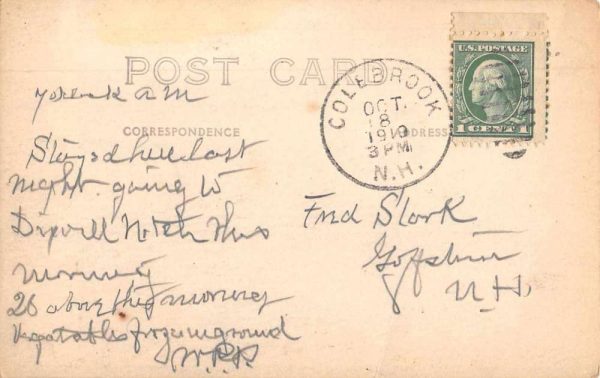 POST CARD
CORRESPONDENCE
ADDRESS
A M
Stayed here last
night going to
Dixvill Notch this
morning
26 above this morning
Vegatables frozen in ground
COLEBROOK
OCT.
18
3 PM
N.H.
U.S. POSTAGE
1 CENT 1
Fred Stark
Goffstown
N H